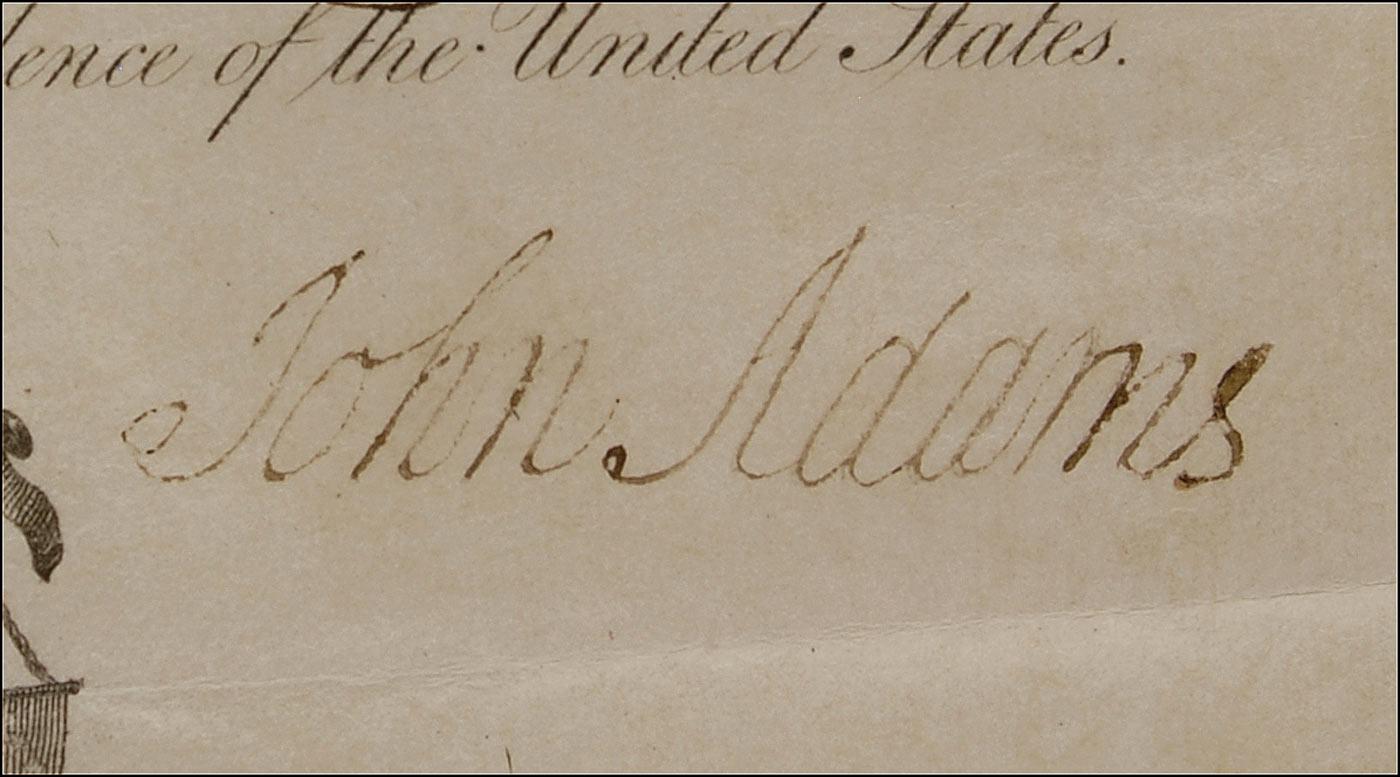 dence of the United States.
John Adams